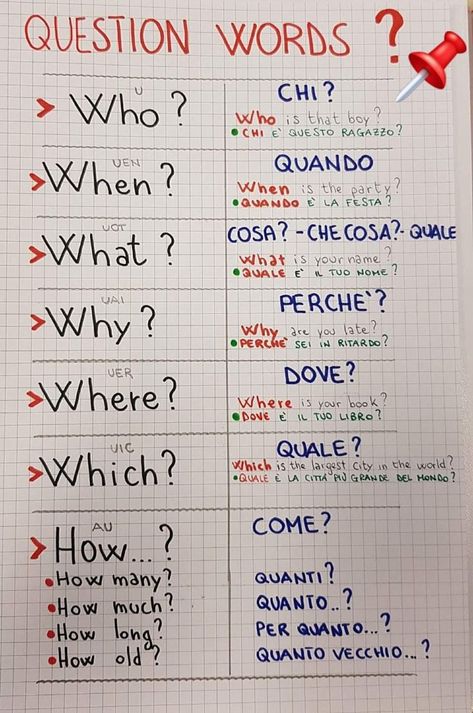 QUESTION WORDS ?
U
> Who ?
CHI ?
Who is that boy ?
• CHI E' QUESTO RAGAZZO ?
UEN
> When ?
QUANDO
When is the party ?
• QUANDO È LA FESTA ?
UOT
> What ?
COSA ? - CHE COSA ? - QUALE
What is your name ?
• QUALE E' IL TUO NOME ?
UAI
> Why ?
PERCHE' ?
Why are you late ?
• PERCHE' SEI IN RITARDO ?
UER
> Where ?
DOVE ?
Where is your book ?
• DOVE E' IL TUO LIBRO ?
UIC
> Which ?
QUALE ?
Which is the largest city in the world ?
• QUALE È LA CITTA' PIÙ GRANDE DEL MONDO ?
AU
> How... ?
COME ?
• How many ?
QUANTI ?
• How much ?
QUANTO..?
• How long ?
PER QUANTO...?
• How old ?
QUANTO VECCHIO...?